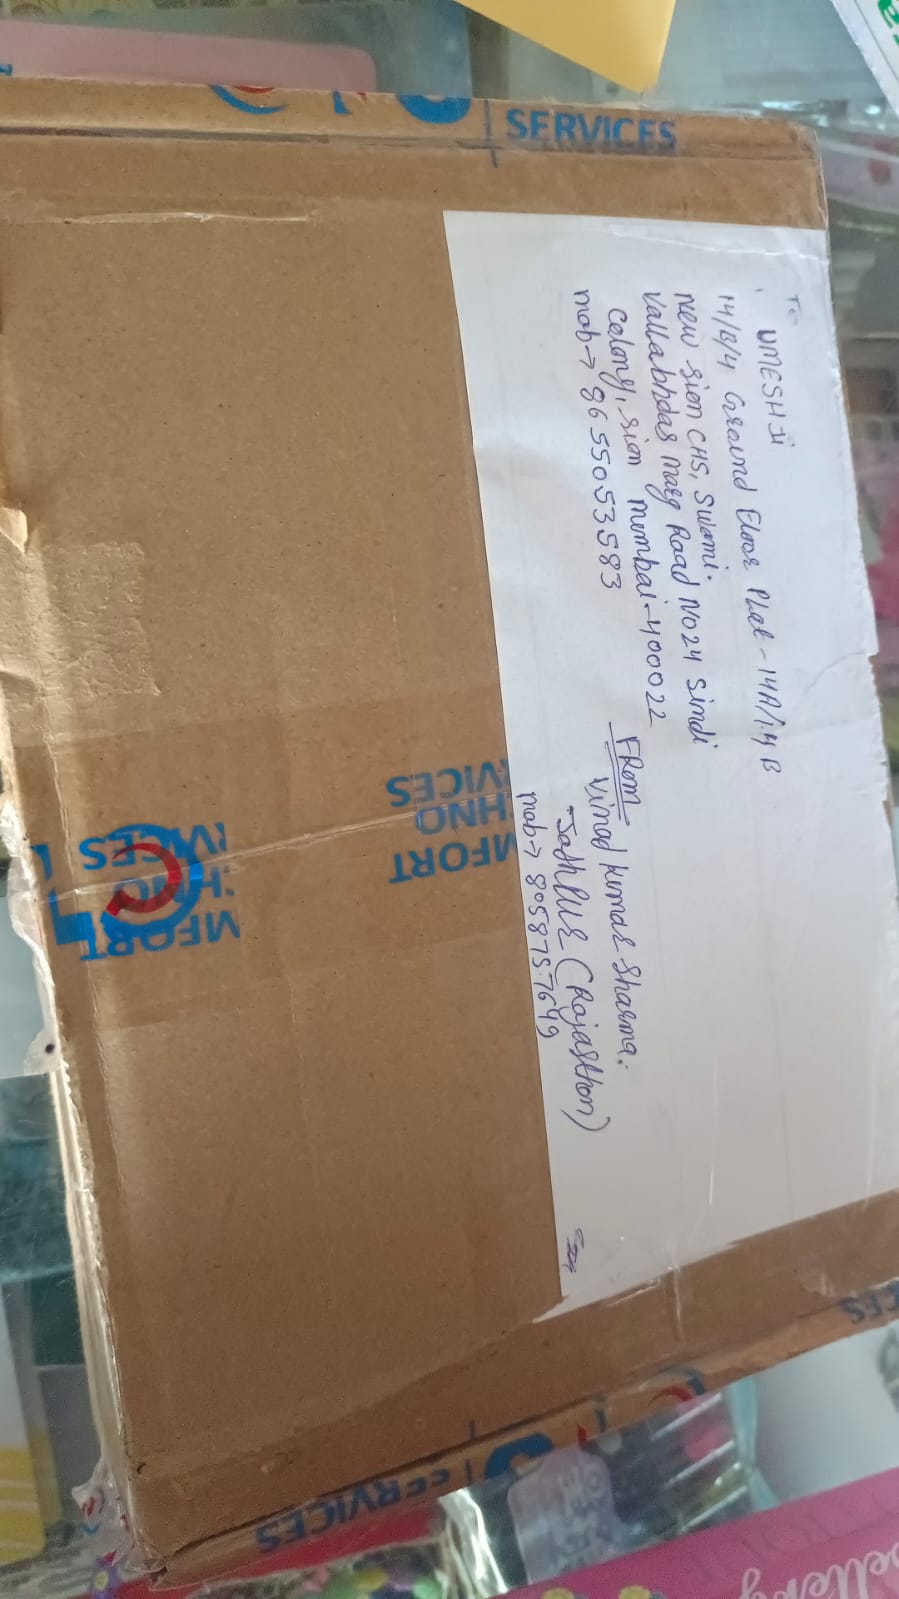 To
UMESH Ji
14/B/4 Ground Floor Plat-14A/14B
New Sion CHS, Swami.
Vallabhdas Marg Road No 24 Sindi
Colony, Sion Mumbai-400022
mob→ 8655053583
FROM
Vinod Kumar Sharma.
Jodhpur (Rajasthan)
mob→ 8058757649
SERVICES
MFORT
HNO
VICES
MFORT
SERVICES
CES